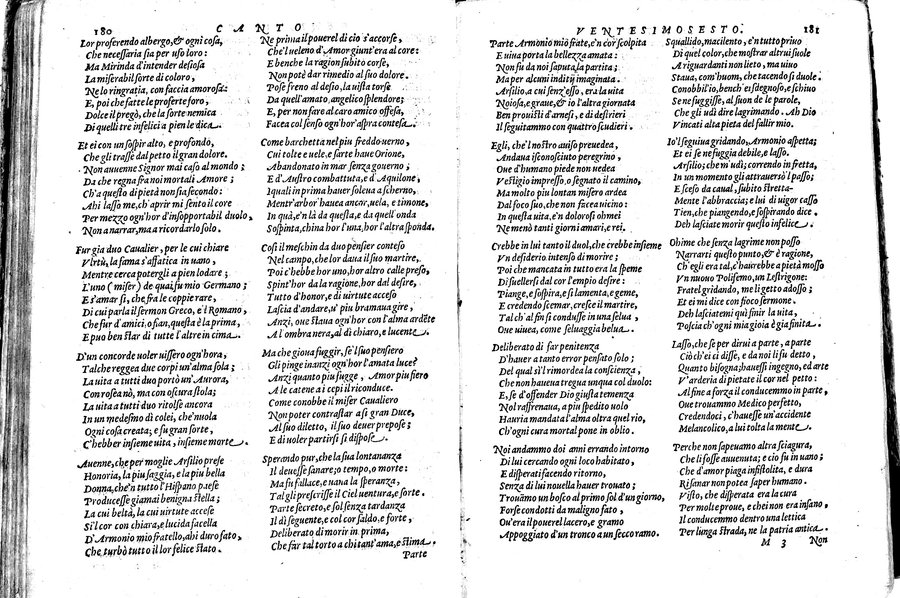 180 CANTO
Lor proferendo albergo, & ogni cosa,
Che necessaria sia per uso loro:
Ma Mirinda d'intender desiosa
La miserabil sorte di coloro,
Ne lo ringratia, con faccia amorosa:
E, poi che fatte le proferte foro,
Dolce il pregò, che la sorte nemica
Di quelli tre infelici a pien le dica.
Et ei con un sospir alto, e profondo,
Che gli trasse dal petto il gran dolore.
Non auenne Signor mai caso al mondo;
Da che regna fra noi mortali Amore;
Ch'a questo di pietà non sia secondo:
Ahi lasso me, ch'aprir mi sento il core
Per mezzo ogn'hor d'insopportabil duolo,
Non a narrar, ma a ricordarlo solo.
Fur gia duo Caualier, per le cui chiare
Virtù, la fama s'affatica in uano,
Mentre cerca potergli a pien lodare;
L'uno (miser) de quai fu mio Germano;
E s'amar sì, che fra le coppie rare,
Di cui parla il sermon Greco, e'l Romano,
Che fur d'amici, o sian, questa è la prima,
E puo ben star di tutte l'altre in cima.
D'un concorde uoler uissero ogn'hora,
Talche reggea due corpi un'alma sola;
La uita a tutti duo portò un'Aurora,
Con rosea nò, ma con oscura stola;
La uita a tutti duo ritolse ancora
In un medesmo dì colei, ch'inuola
Ogni cosa creata; e su gran sorte,
C'hebber insieme uita, insieme morte.
Auenne, che per moglie Arsilio prese
Honoria, la piu saggia, e la piu bella
Donna, che'n tutto l'Hispano paese
Producesse giamai benigna stella;
La cui beltà, la cui uirtute accese
Sì'l cor con chiara, e lucida facella
D'Armonio mio fratello, ahi duro fato,
Che turbò tutto il lor felice stato.
Ne prima il pouerel di cio s'accorse,
Che'l ueleno d'Amor giunt'era al core:
E benche la ragion subito corse,
Non potè dar rimedio al suo dolore.
Pose freno al desio, la uista torse
Da quell'amato, angelico splendore;
E, per non fare al caro amico offesa,
Facea col senso ogn'hor aspra contesa.
Come barchetta nel piu freddo uerno,
Cui tolte e uele, e sarte haue Orione,
Abandonato in mar senza gouerno;
E d'Austro combattuta, e d'Aquilone;
I quali in prima hauer solcua a scherno,
Mentr'arbor hauea ancor, uela, e timone,
In quà, e'n là da questa, e da quell'onda
Sospinta, china hor l'una, hor l'altra sponda.
Così il meschin da duo pensier conteso
Nel campo, che lor daua il suo martire,
Poi c'hebbe hor uno, hor altro calle preso,
Spint'hor da la ragion, hor dal desire,
Tutto d'honor, e di uirtute acceso
Lascia d'andar, u' piu bramaua gire,
Anzi, oue staua ogn'hor con l'alma ardēte
A l'ombra nera, al dì chiaro, e lucente.
Ma che gioua fuggir, se'l suo pensiero
Gli pinge inanzi ogn'hor l'amata luce?
Anzi quanto piu fugge, Amor piu fiero
A le catene ai ceppi il riconduce.
Come conobbe il miser Caualiero
Non poter contrastar a sì gran Duce,
Al suo diletto, il suo deuer prepose;
E di uoler partirsi si dispose.
Sperando pur, che la sua lontananza
Il deuesse sanare; o tempo, o morte:
Ma fu fallace, e uana la speranza,
Tal gli prescrisse il Ciel uentura, e sorte.
Parte secreto, e sol senza tardanza
Il dì seguente, e col cor saldo, e forte,
Deliberato di morir in prima,
Che far tal torto a chi tant'ama, e stima.
Parte
VENTESIMOSESTO. 181
Parte Armonio mio frate, e'n cor scolpita
E uiua porta la bellezza amata:
Non fu da noi saputa la partita;
Ma per alcuni indity imaginata.
Arsilio, a cui senz'esso, era la uita
Noiosa, e graue, & io l'altra giornata
Ben prouisti d'arnesi, e di destrieri
Il seguitammo con quattro scudieri.
Egli, che'l nostro auiso preuedea,
Andaua isconosciuto peregrino,
Oue d'humano piede non uedea
Vestigio impresso, o segnato il camino,
Ma molto piu lontan misero ardea
Dal foco suo, che non facea uicino:
In questa uita, e'n dolorosi ohmei
Ne menò tanti giorni amari, e rei.
Crebbe in lui tanto il duol, che crebbe insieme
Vn desiderio intenso di morire;
Poi che mancata in tutto era la speme
Di suellersi dal cor l'empio desire:
Piange, e sospira, e si lamenta, e geme,
E credendo scemar, cresce il martire,
Tal ch'al fin si condusse in una selua,
Oue uiuea, come seluaggia belua.
Deliberato di far penitenza
D'hauer a tanto error pensato solo;
Del qual sì'l rimordea la conscienza,
Che non haueua tregua unqua col duolo:
E, se d'offender Dio giusta temenza
Nol raffrenaua, a piu spedito uolo
Hauria mandata l'alma oltra quel rio,
Ch'ogni cura mortal pone in oblio.
Noi andammo doi anni errando intorno
Di lui cercando ogni loco habitato,
E disperati facendo ritorno,
Senza di lui nouella hauer trouato;
Trouāmo un bosco al primo sol d'un giorno,
Forse condotti da maligno fato,
Ou'era il pouerel lacero, e gramo
Appoggiato d'un tronco a un secco ramo.
Squallido, macilento, e'n tutto priuo
Di quel color, che mostrar altrui suole
A riguardanti non lieto, ma uiuo
Staua, com'huom, che tacendo si duole.
Conobbil io, bench'ei sdegnoso, e schiuo
Se ne fuggisse, al suon de le parole,
Che gli udì dire lagrimando. Ah Dio
Vincati alta pieta del fallir mio.
Io'l seguiua gridando, Armonio aspetta;
Et ei se ne fuggia debile, e lasso.
Arsilio; che m'udì; correndo in fretta,
In un momento gli attrauersò'l passo;
E sceso da caual, subito stretta-
Mente l'abbraccia; e lui di uigor casso
Tien, che piangendo, e sospirando dice.
Deh lasciate morir questo infelice.
Ohime che senza lagrime non posso
Narrarti questo punto, & è ragione,
Ch'egli era tal, c'haurebbe a pietà mosso
Vn nuouo Polifemo, un Lestrigone:
Fratel gridando, me li getto adosso;
Et ei mi dice con fioco sermone.
Deh lasciatemi quì finir la uita,
Poscia ch'ogni mia gioia è gia finita.
Lasso, che se per dirui a parte, a parte
Ciò ch'ei ci disse, e da noi li fu detto,
Quanto bisogna; hauessi ingegno, ed arte
V'arderia di pietate il cor nel petto:
Al fine a forza il conducemmo in parte,
Oue trouammo Medico perfetto,
Credendoci, c'hauesse un'accidente
Melancolico, a lui tolta la mente.
Perche non sapeuamo altra sciagura,
Che li fosse auuenuta; e cio fu in uano;
Che d'amor piaga infistolita, e dura
Risanar non potea saper humano.
Visto, che disperata era la cura
Per molte proue, e che i non era insano,
Il conducemmo dentro una lettica
Per lunga strada, ne la patria antica.
M 3 Non